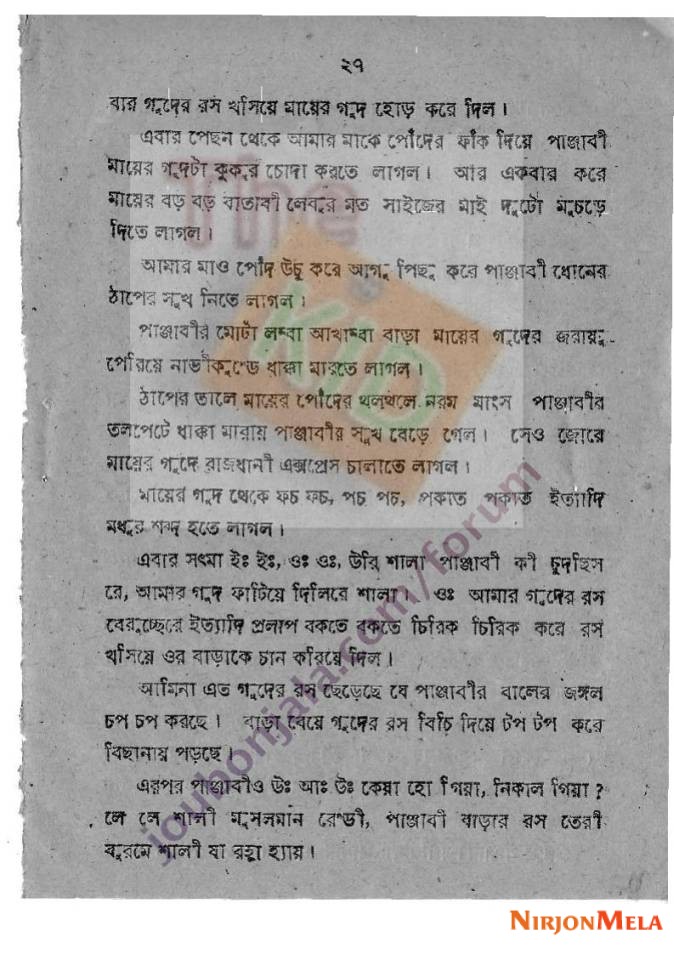 ২৭
বার গুদের রস খসিয়ে মায়ের গুদ হোড় করে দিল।
এবার পেছন থেকে আমার মাকে পোঁদের ফাঁক দিয়ে পাঞ্জাবী
মায়ের গুদটা কুকুর চোদা করতে লাগল। আর একবার করে
মায়ের বড় বড় বাতাবী লেবুর মত সাইজের মাই দুটো মুচড়ে
দিতে লাগল।
আমার মাও পোঁদ উচু করে আগু পিছু করে পাঞ্জাবী ধোনের
ঠাপের সুখ নিতে লাগল।
পাঞ্জাবীর মোটা লম্বা আখাম্বা বাড়া মায়ের গুদের জরায়ু
পেরিয়ে নাভীকুণ্ডে ধাক্কা মারতে লাগল।
ঠাপের তালে মায়ের পোঁদের থলথলে নরম মাংস পাঞ্জাবীর
তলপেটে ধাক্কা মারায় পাঞ্জাবীর সুখ বেড়ে গেল। সেও জোরে
মায়ের গুদে রাজধানী এক্সপ্রেস চালাতে লাগল।
মায়ের গুদ থেকে ফচ ফচ, পচ পচ, পকাত পকাত ইত্যাদি
মধুর শব্দ হতে লাগল।
এবার সৎমা ইঃ ইঃ, ওঃ ওঃ, উরি শালা পাঞ্জাবী কী চুদছিস
রে, আমার গুদ ফাটিয়ে দিলিরে শালা। ওঃ আমার গুদের রস
বেরুচ্ছেরে ইত্যাদি প্রলাপ বকতে বকতে চিরিক চিরিক করে রস
খসিয়ে ওর বাড়াকে চান করিয়ে দিল।
আমিনা এত গুদের রস ছেড়েছে যে পাঞ্জাবীর বালের জঙ্গল
চপ চপ করছে। বাড়া বেয়ে গুদের রস বিচি দিয়ে টপ টপ করে
বিছানায় পড়ছে।
এরপর পাঞ্জাবীও উঃ আঃ উঃ কেয়া হো গিয়া, নিকাল গিয়া?
লে লে শালী মুসলমান রেন্ডী, পাঞ্জাবী বাড়ার রস তেরী
বুরমে শালী যা রহা হ্যায়।
The
KiD
joubonjala.com/forum
NIRJONMELA